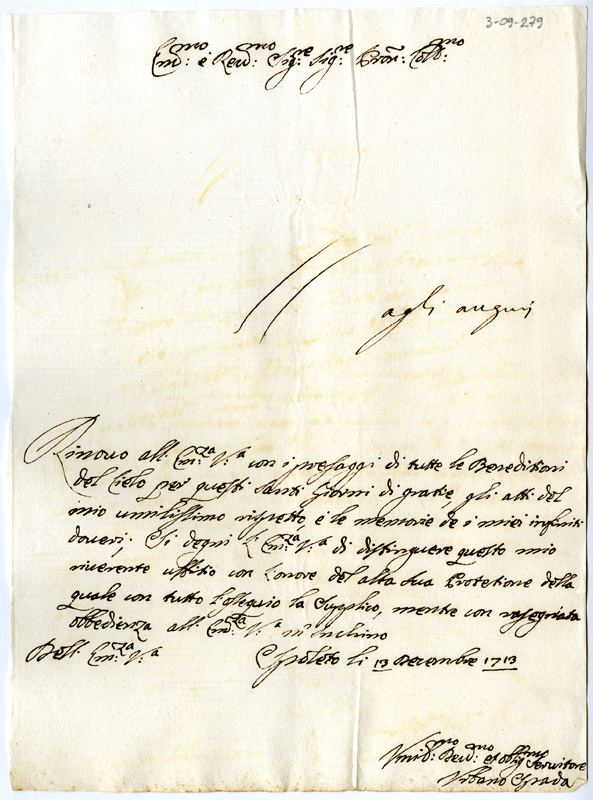 3-09-279
Em:mo e Rev:mo Sig:re Sig:re Pron: Coll:mo
agli augurij
Rinovo all: Em:za V:a con i presaggi di tutte le Beneditioni
del Cielo per questi Santi Giorni di gratie, gli atti del
mio umilissimo rispetto, e le memorie de i miei infiniti
doveri; Si degni l'Em:za V:a di distinguere questo mio
riverente uffitio con l'onore del alta sua Protetione della
quale con tutto l'ossequio la Supplico, mentre con rasegniata
obbedienza all: Em:za V:a m'Inchino
Dell: Em:za V:a Spoleto li 13 Decembre 1713
Umil:mo Dev:mo et obb:mo Servitore
Urbano Spada